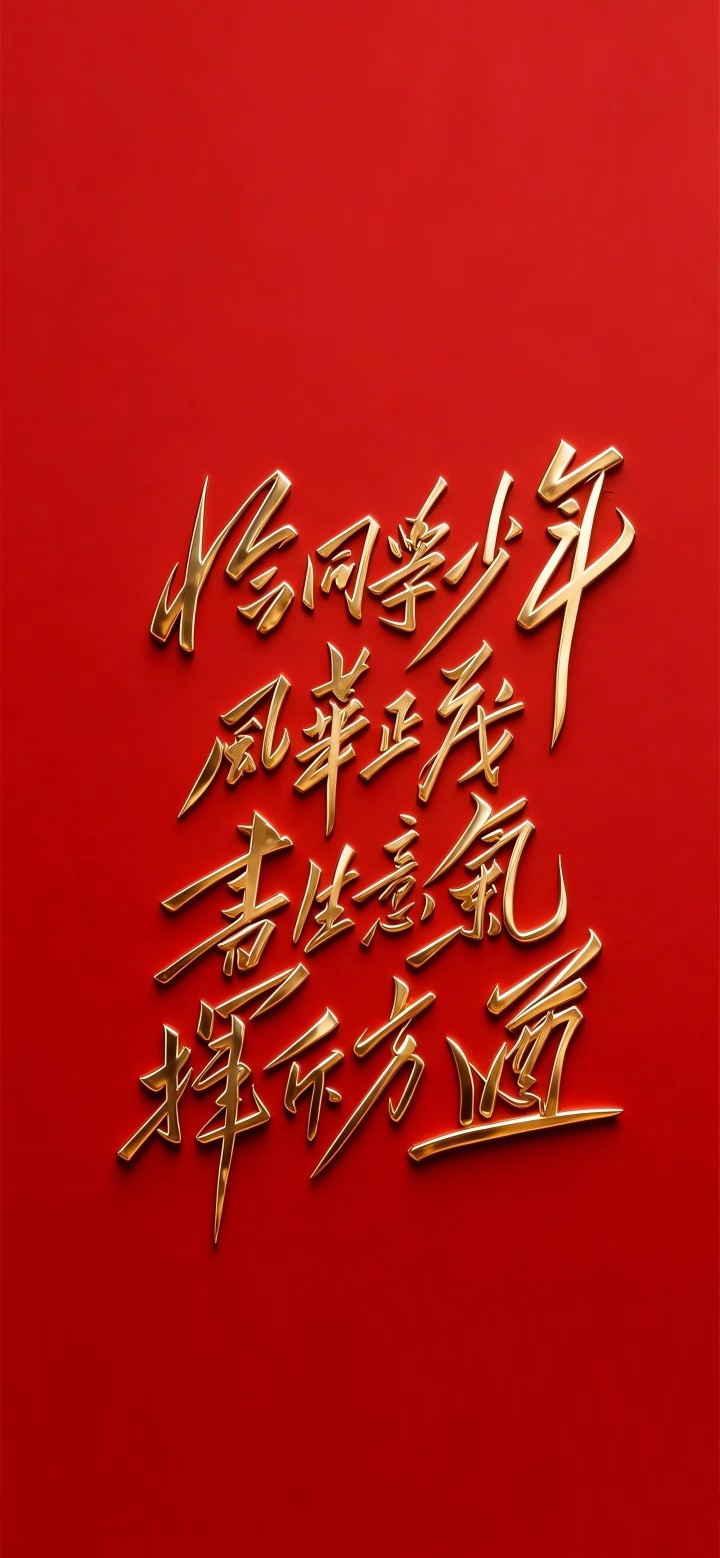 恰同學少年
風華正茂
書生意氣
揮斥方遒